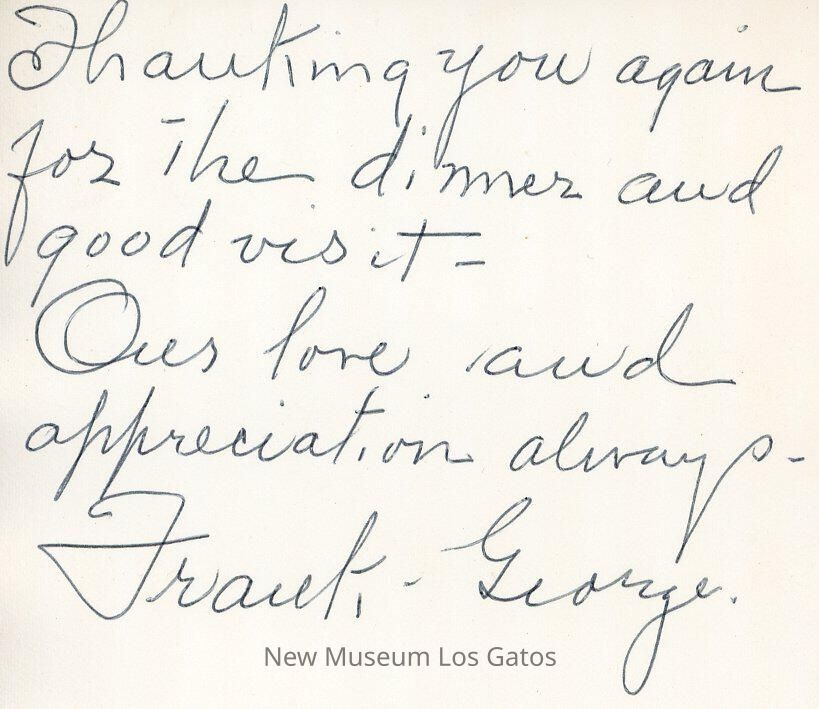 Thanking you again
for the dinner and
good visit =
Our love and
appreciation always -
Frank - George.
New Museum Los Gatos